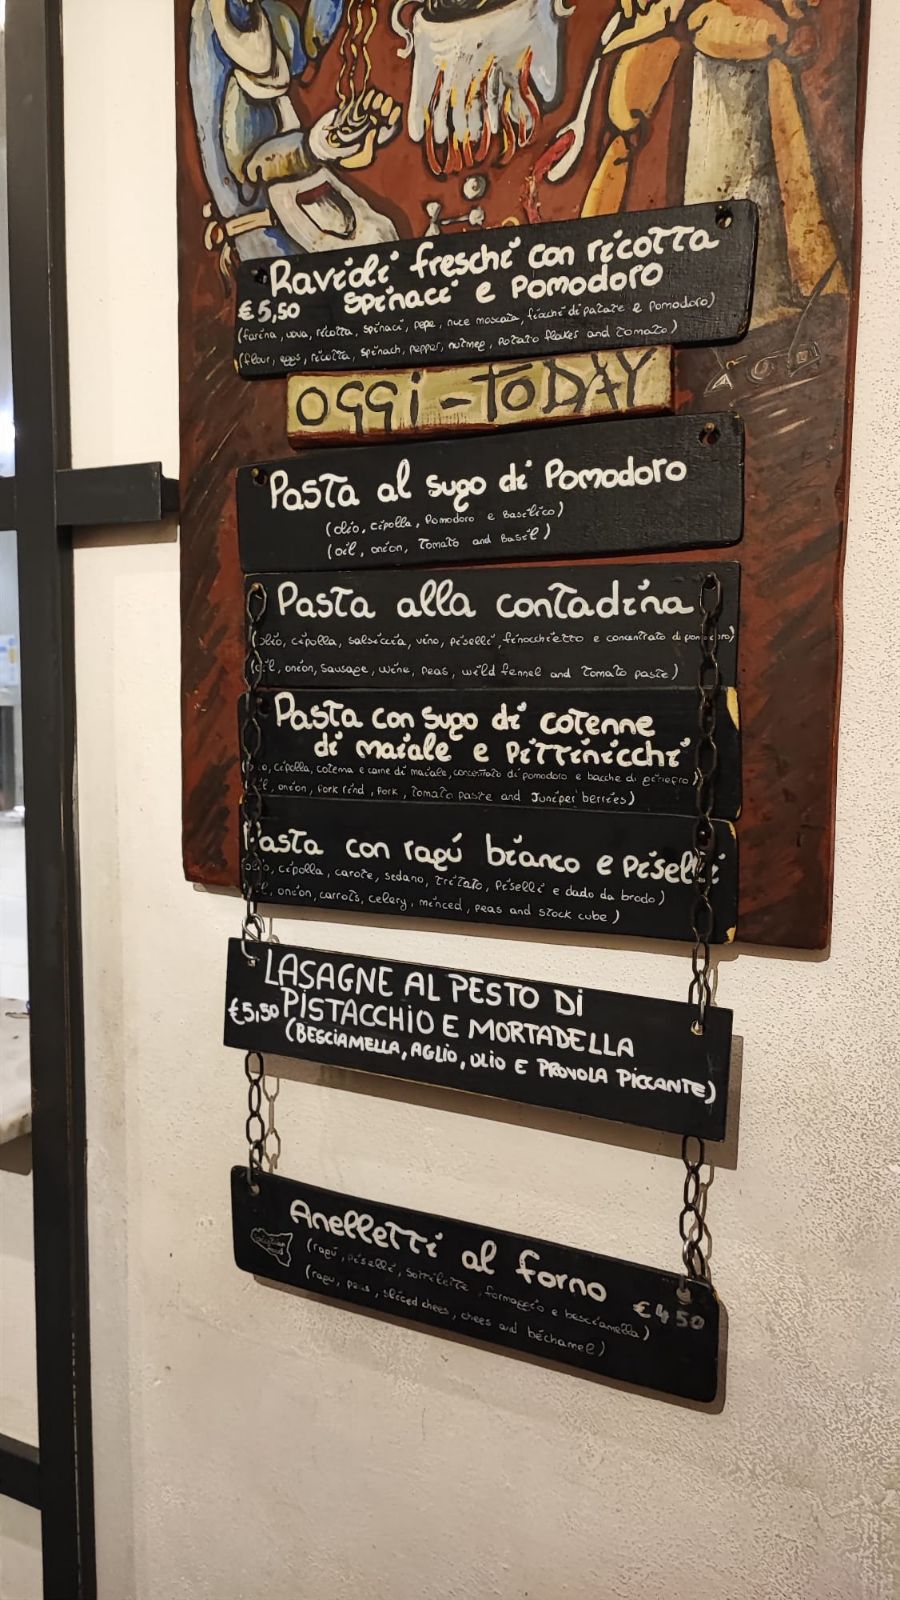 Ravioli freschi con ricotta
€5,50 spinaci e pomodoro
(farina, uova, ricotta, spinaci, pepe, noce moscata, fiocchi di patate e pomodoro)
(flour, eggs, ricotta, spinach, pepper, nutmeg, potato flakes and tomato)
OGGi - TODAY
Pasta al sugo di Pomodoro
(olio, cipolla, Pomodoro e Basilico)
(oil, onion, Tomato and Basil)
Pasta alla contadina
(olio, cipolla, salsiccia, vino, piselli, finocchietto e concentrato di pomodoro)
(oil, onion, sausage, wine, peas, wild fennel and tomato paste)
Pasta con sugo di cotenne
di maiale e pittinicchi
cipolla, cotenna e carne di maiale, concentrato di pomodoro e bacche di ginepro)
onion, Pork rind, Pork, Tomato paste and Juniper berries)
Pasta con ragú bianco e piselli
olio, cipolla, carote, sedano, tritato, piselli e dado da brodo)
onion, carrots, celery, minced, peas and stock cube)
LASAGNE AL PESTO Di
€5,50 PISTACCHIO E MORTADELLA
(BESCIAMELLA, AGLIO, OLIO E PROVOLA PICCANTE)
Anelletti al forno
(ragú, piselli, sottilette, formaggio e besciamella)
€4 50
(ragu, peas, sliced chees, chees and béchamel)